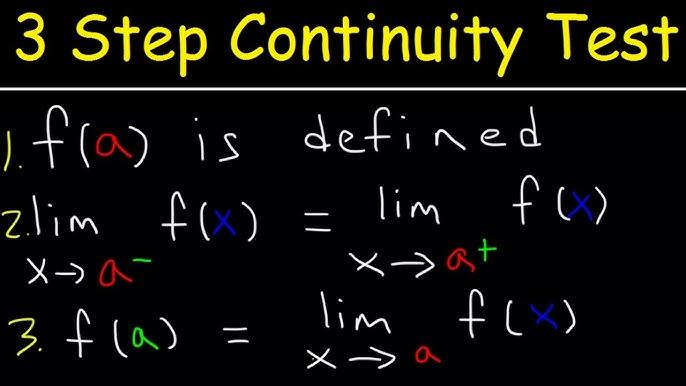 3 Step Continuity Test
1. f(a) is defined
2. lim x→a⁻ f(x) = lim x→a⁺ f(x)
3. f(a) = lim x→a f(x)